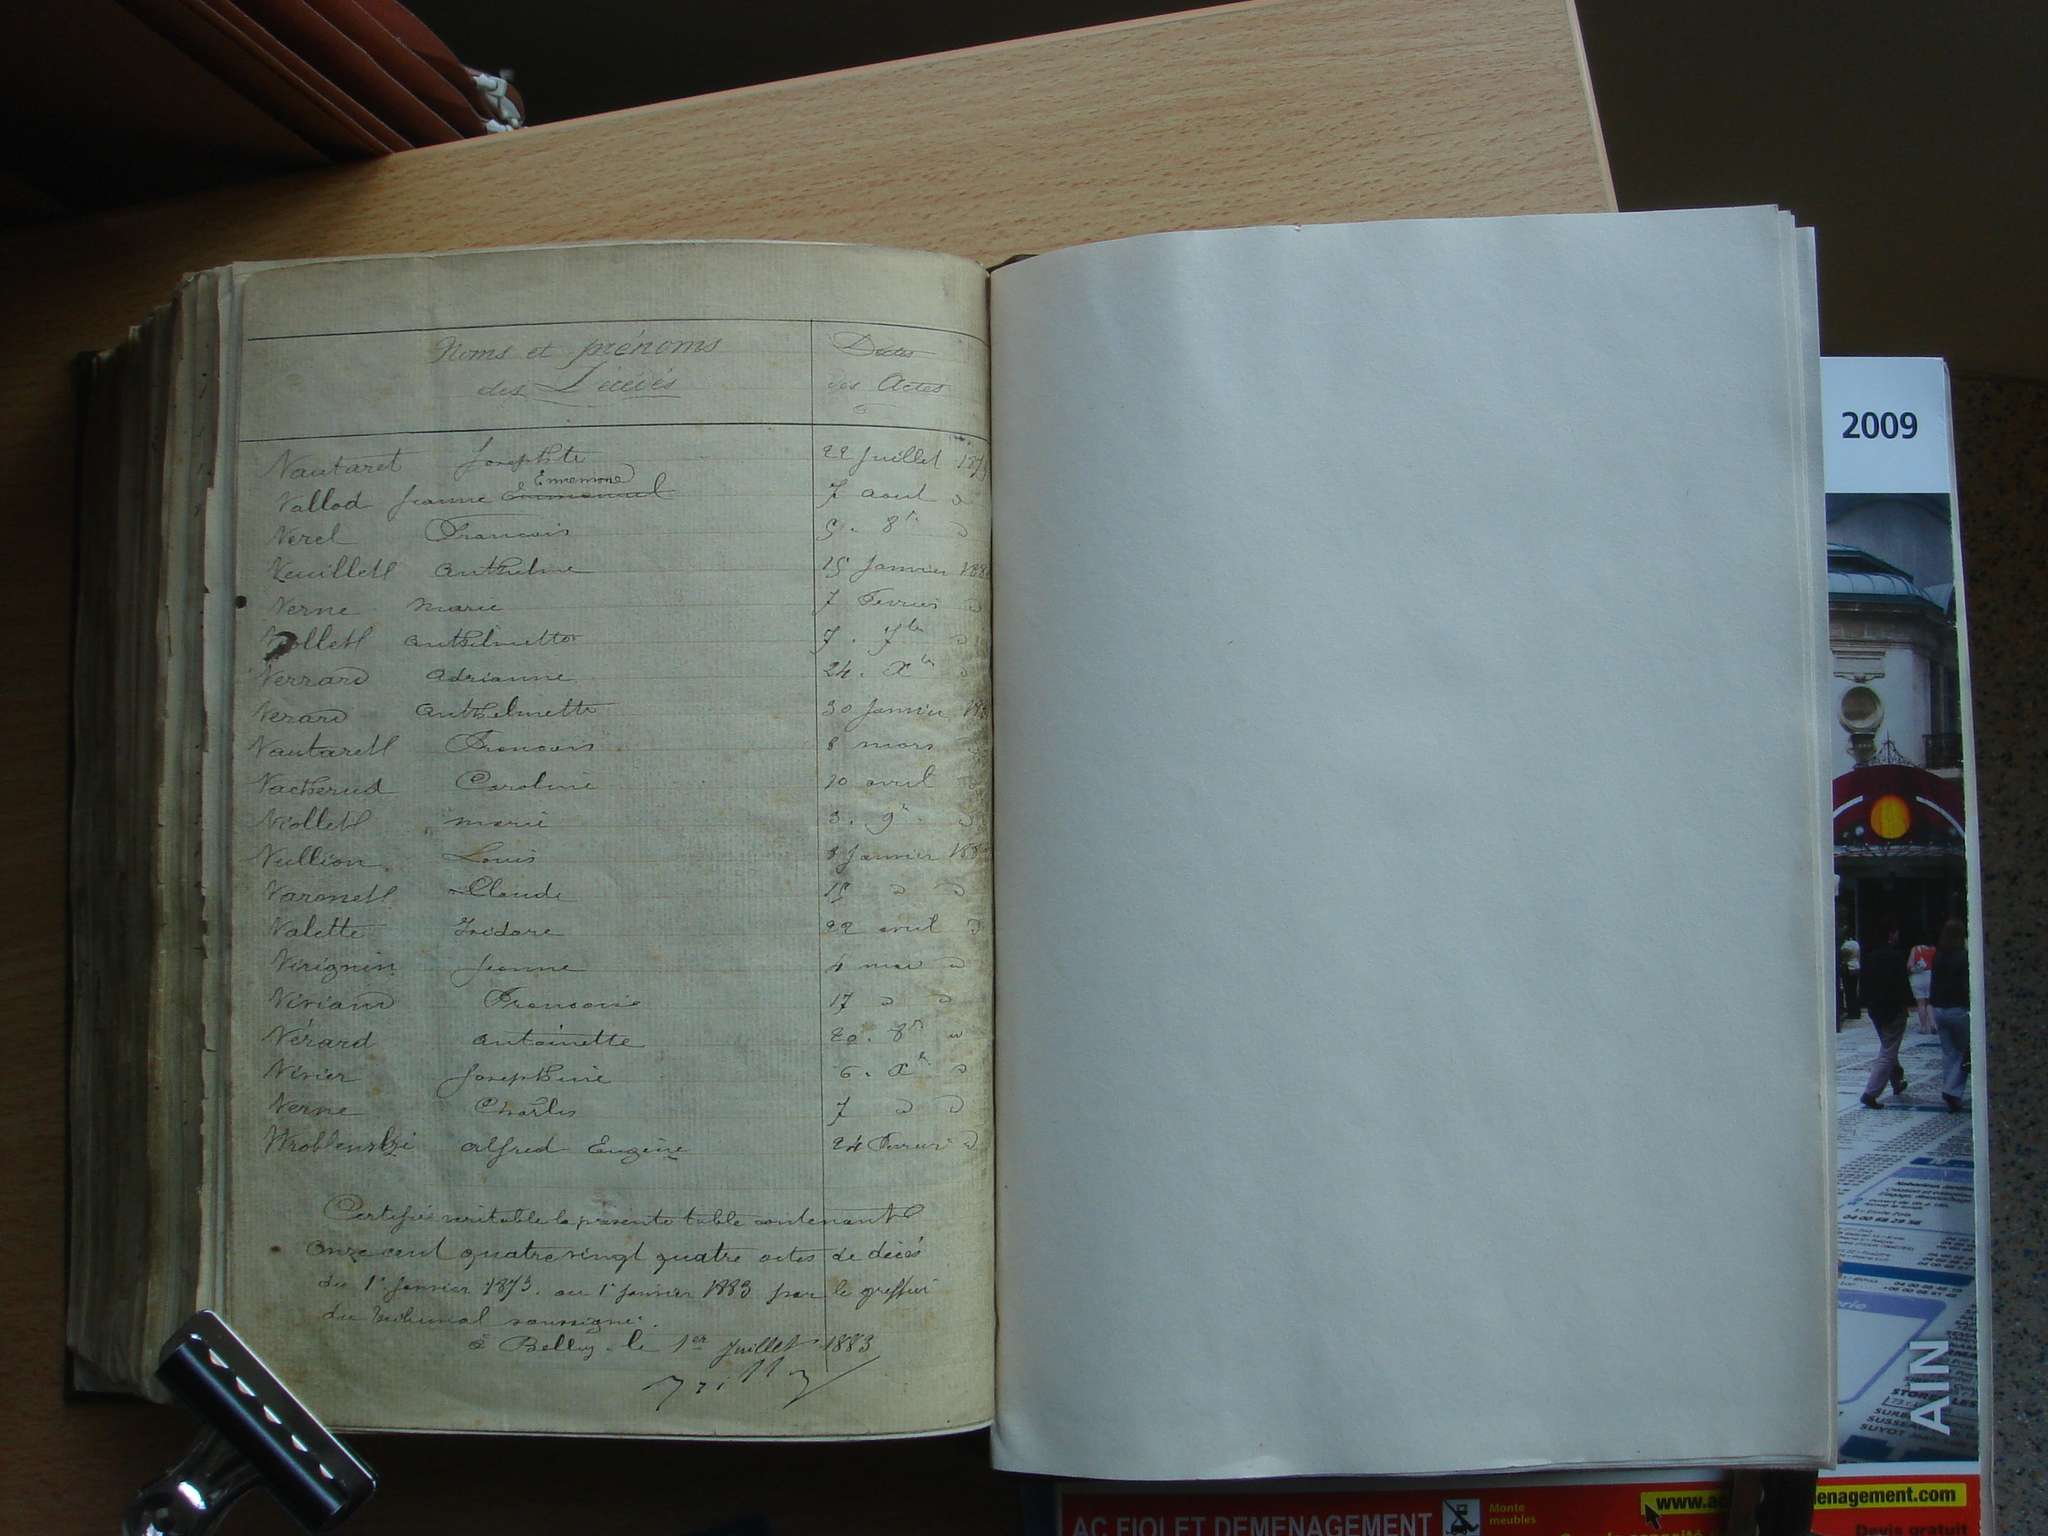 Noms et prénoms
des Décédés
Dates
des Actes
Vautaret Josephte 22 Juillet 1879
Vallod Jeanne Emmanuel Ennemone 7 aout d
Verel Francois 5. 8bre d
Veuillet anthelme 15 Janvier 188
Verne marie 7 Fevrier d
Viollet anthelmette 7. 7bre d
Verrard adrianne 24. Xbre d
Verard anthelmette 30 Janvier 188
Vautaret Francois 8 mars d
Vacherud Caroline 10 avril d
Viollet marie 3. 9bre d
Vullion Louis 8 Janvier 188
Varonet Claude 15 d d
Valette Isidore 22 avril d
Virignin Jeanne 4 mai d
Viviand Francoise 17 d d
Vérard antoinette 20. 8bre d
Vivier Josephine 6. Xbre d
Verne Charles 7 d d
Wroblewski alfred Eugène 24 Fevrier d
Certifié veritable la présente table contenant
onze cent quatre vingt quatre actes de décès
du 1er Janvier 1873. au 1er Janvier 1883 par le greffier
du tribunal soussigné.
à Belley. le 1er Juillet 1883
2009
AIN
04 00 68 29 56
AC FIOLET DEMENAGEMENT
Monte
meubles
www.ac
menagement.com
Devis gratuit